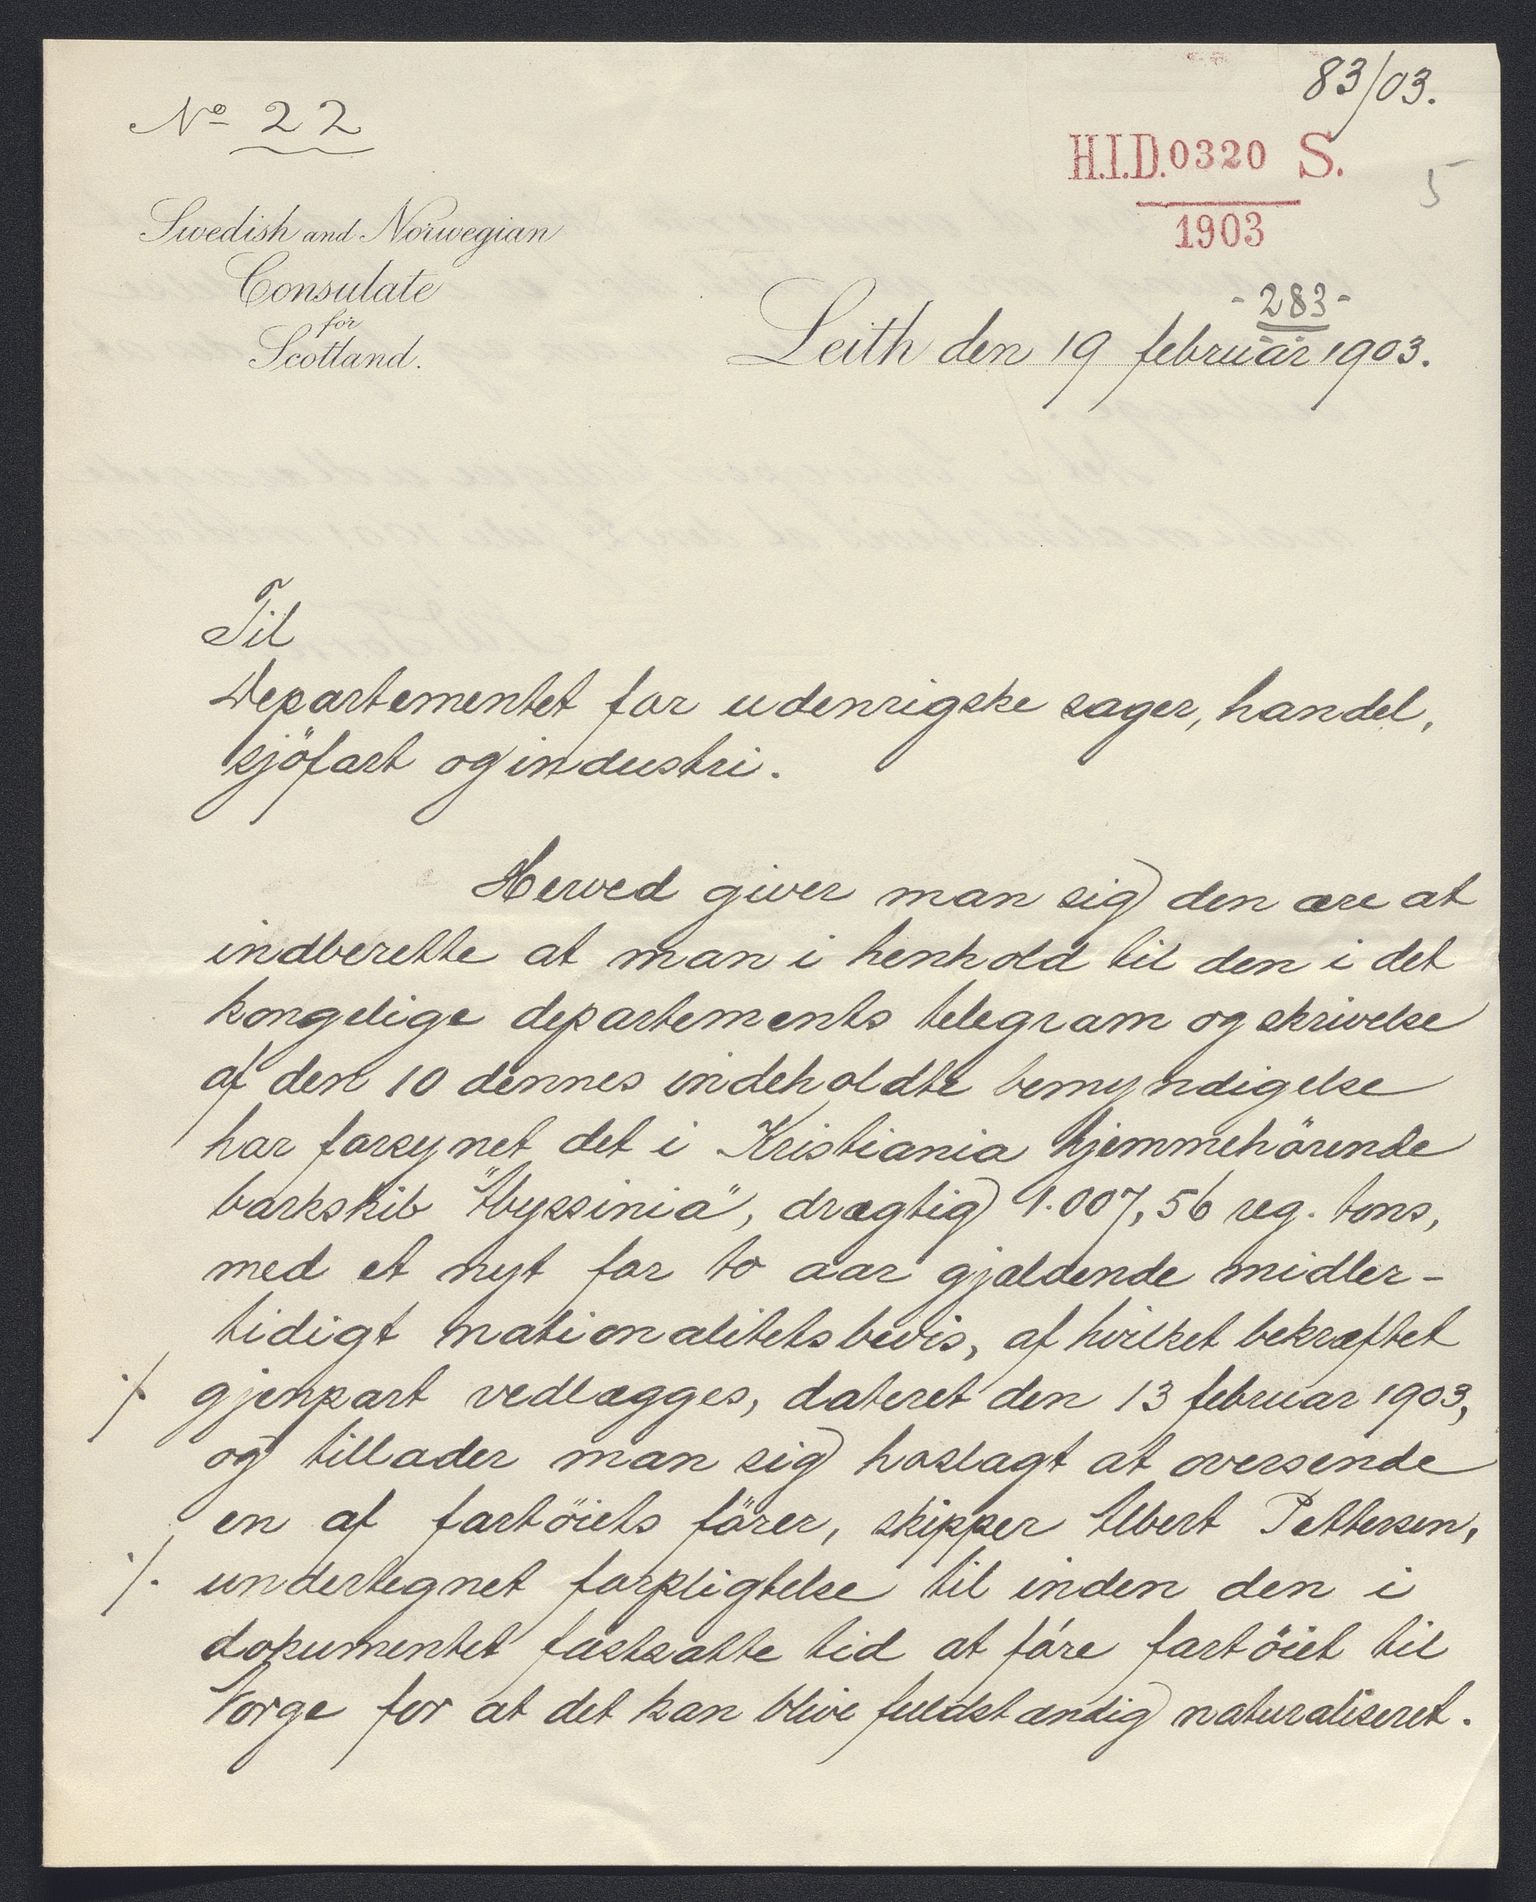 83/03.
No 22
H.I.D. 0320 S.
5
1903
Swedish and Norwegian
Consulate
for
Scotland.
- 283 -
Leith den 19 februar 1903.
Til
Departementet for udenrigske sager, handel,
sjöfart og industri.
Herved giver man sig den ære at
indberette at man i henhold til den i det
kongelige departements telegram og skrivelse
af den 10 dennes indeholdte bemyndigelse
har forsynet det i Kristiania hjemmehörende
barkskib "Abyssinia", drægtig 1.007,56 reg. tons,
med et nyt for to aar gjældende midler-
tidigt nationalitetsbevis, af hvilket bekræftet
./. gjenpart vedlægges, dateret den 13 februar 1903,
og tillader man sig hoslagt at oversende
en af fartöiets förer, skipper Albert Pettersen,
./. undertegnet forpligtelse til inden den i
dokumentet fastsatte tid at före fartöiet til
Norge for at det kan blive fuldstændig naturaliseret.